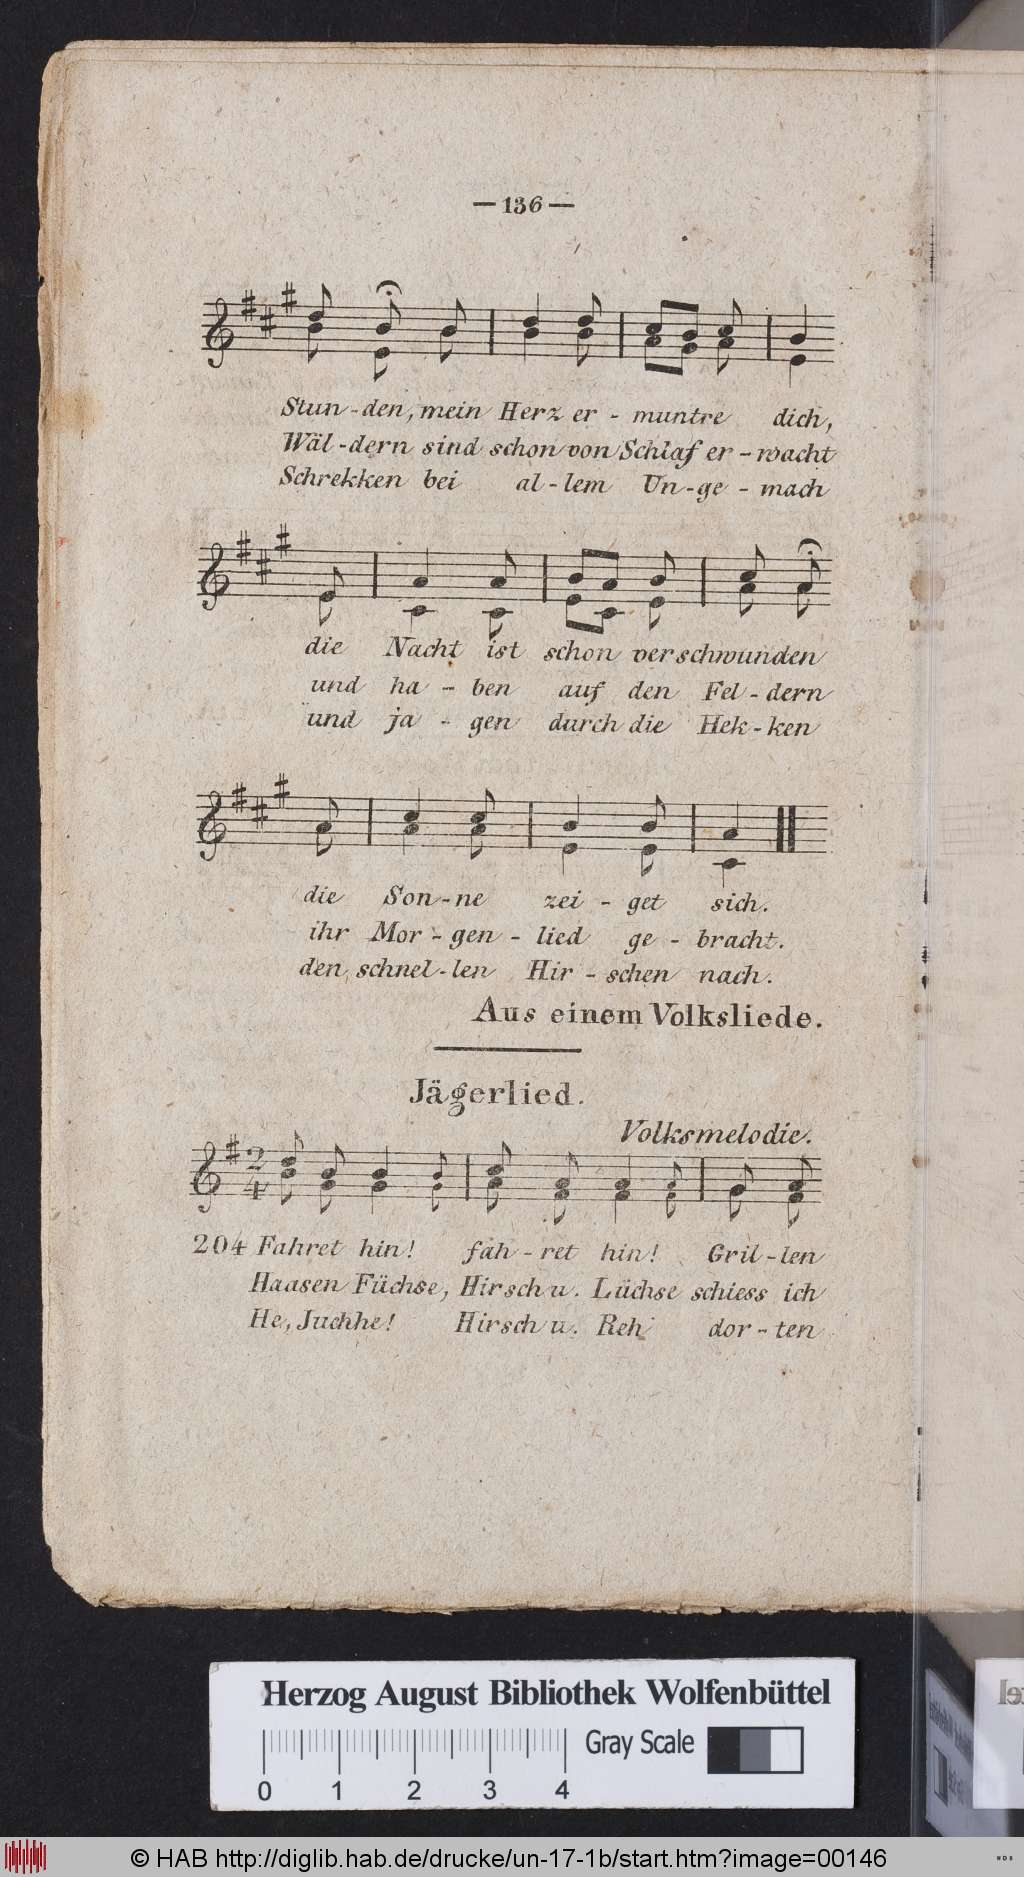 — 136 —
Stun - den, mein Herz er - muntre dich,
Wäl - dern sind schon von Schlaf er - wacht
Schrekken bei al - lem Un - ge - mach
die Nacht ist schon verschwunden
und ha - ben auf den Fel - dern
und ja - gen durch die Hek - ken
die Son - ne zei - get sich.
ihr Mor - gen - lied ge - bracht.
den schnel - len Hir - schen nach.
Aus einem Volksliede.
Jägerlied.
Volksmelodie.
2
4
204 Fahret hin! fah - ret hin! Gril - len
Haasen Füchse, Hirsch u. Lüchse schiess ich
He, Juchhe! Hirsch u. Reh dor - ten
Herzog August Bibliothek Wolfenbüttel
Gray Scale
0 1 2 3 4
© HAB http://diglib.hab.de/drucke/un-17-1b/start.htm?image=00146